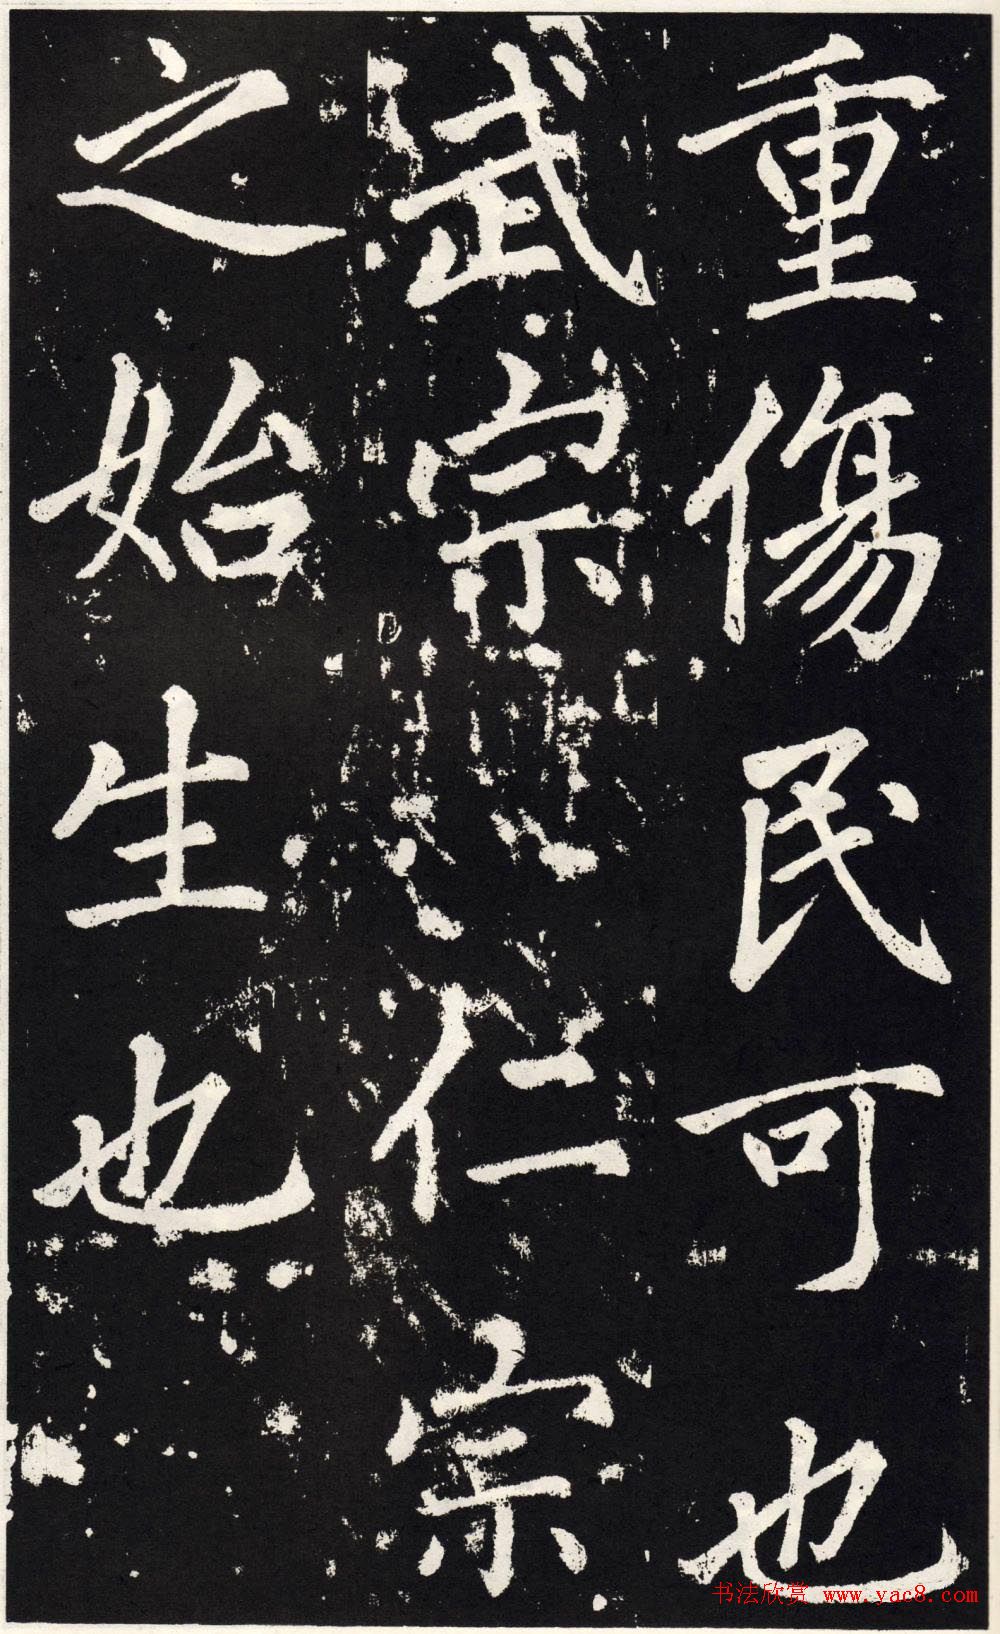 重傷民可也
武宗仁宗
之始生也
书法欣赏 www.yac8.com